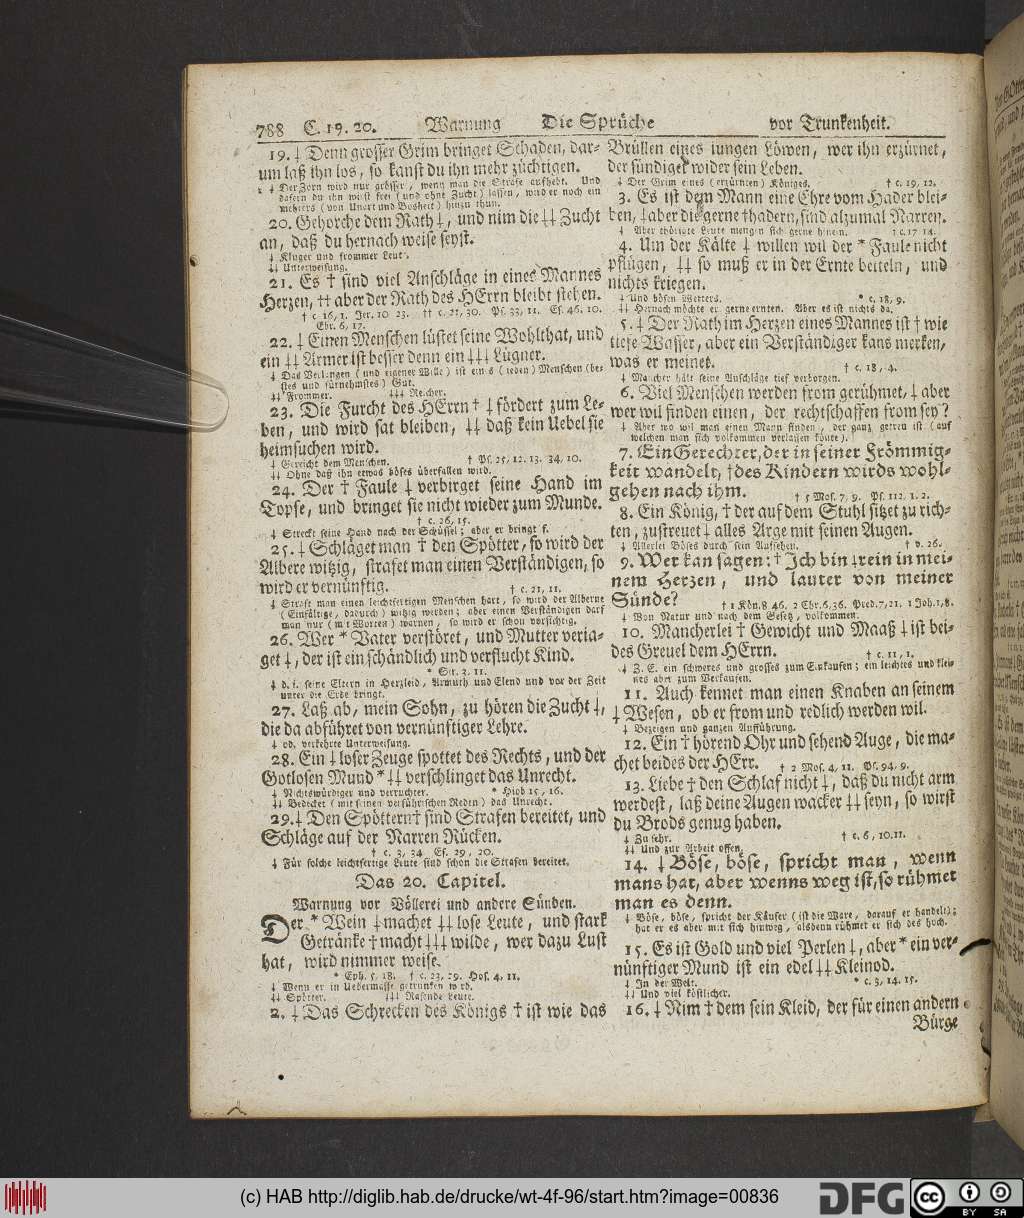 788 C. 19. 20. Warnung Die Sprüche vor Trunkenheit.
19. ⸸ Denn grosser Grim bringet Schaden, dar-
um laß ihn los, so kanst du ihn mehr züchtigen.
⸸ Der Zorn wird nur grösser, wenn man die Strafe aufhebt. Und
dafern du ihn wirst frei (und ohne Zucht) lassen, wird er noch ein
mehrers (von Unart und Bosheit) hinzu thun.
20. Gehorche dem Rath ⸸, und nim die ⸸⸸ Zucht
an, daß du hernach weise seyst.
⸸ Kluger und frommer Leut.
⸸⸸ Unterweisung.
21. Es † sind viel Anschläge in eines Mannes
Herzen, †† aber der Rath des HErrn bleibt stehen.
† c. 16, 1. Jer. 10 23. †† c. 21, 30. Ps. 33, 11. Es. 46. 10.
Ebr. 6, 17.
22. ⸸ Einen Menschen lüstet seine Wohlthat, und
ein ⸸⸸ Armer ist besser denn ein ⸸⸸⸸ Lügner.
⸸ Das Verlangen (und eigener Wille) ist eines (ieden) Menschen (be-
stes und fürnehmstes) Gut.
⸸⸸ Frommer. ⸸⸸⸸ Reicher.
23. Die Furcht des HErrn † ⸸ fördert zum Le-
ben, und wird sat bleiben, ⸸⸸ daß kein Uebel sie
heimsuchen wird.
⸸ Gereicht dem Menschen. † Ps. 25, 12. 13. 34, 10.
⸸⸸ Ohne daß ihn etwas böses überfallen wird.
24. Der † Faule ⸸ verbirget seine Hand im
Topfe, und bringet sie nicht wieder zum Munde.
† c. 26, 15.
⸸ Streckt seine Hand nach der Schüssel; aber er bringt s.
25. ⸸ Schläget man † den Spötter, so wird der
Albere witzig, strafet man einen Verständigen, so
wird er vernünftig. † c. 21, 11.
⸸ Straft man einen leichtfertigen Menschen hart, so wird der Alberne
(Einfältige, dadurch) witzig werden; aber einen Verständigen darf
man nur (mit Worten) warnen, so wird er schon vorsichtig.
26. Wer * Vater verstöret, und Mutter verja-
get ⸸, der ist ein schändlich und verflucht Kind.
* Sir. 3. 11.
⸸ d. i. seine Eltern in Herzleid, Armuth und Elend und vor der Zeit
unter die Erde bringt.
27. Laß ab, mein Sohn, zu hören die Zucht ⸸,
die da abführet von vernünftiger Lehre.
⸸ od. verkehrte Unterweisung.
28. Ein ⸸ loser Zeuge spottet des Rechts, und der
Gotlosen Mund * ⸸⸸ verschlinget das Unrecht.
⸸ Nichtswürdiger und verruchter. * Hiob 15, 16.
⸸⸸ Bedecket (mit seinen verführischen Reden) das Unrecht.
29. ⸸ Den Spöttern † sind Strafen bereitet, und
Schläge auf der Narren Rücken.
† c. 3, 34. Es. 29, 20.
⸸ Für solche leichtfertige Leute sind schon die Strafen bereitet.
Das 20. Capitel.
Warnung vor Völlerei und andere Sünden.
Der * Wein ⸸ machet ⸸⸸ lose Leute, und stark
Getränke † macht ⸸⸸⸸ wilde, wer dazu Lust
hat, wird nimmer weise.
* Eph. 5, 18. † c. 23, 29. Hos. 4, 11.
⸸ Wenn er in Uebermasse getrunken wird.
⸸⸸ Spötter. ⸸⸸⸸ Rasende Leute.
2. ⸸ Das Schrecken des Königs † ist wie das
Brüllen eines iungen Löwen, wer ihn erzürnet,
der sündiget wider sein Leben.
⸸ Der Grim eines (erzürnten) Königes. † c. 19, 12.
3. Es ist dem Mann eine Ehre vom Hader blei-
ben, ⸸ aber die gerne † hadern, sind alzumal Narren.
⸸ Aber thörigte Leute mengen sich gerne hinein. † c. 17 14.
4. Um der Kälte ⸸ willen wil der * Faule nicht
pflügen, ⸸⸸ so muß er in der Ernte betteln, und
nichts kriegen.
⸸ Und bösen Wetters. * c. 18, 9.
⸸⸸ Hernach möchte er gerne ernten. Aber es ist nichts da.
5. ⸸ Der Rath im Herzen eines Mannes ist † wie
tiefe Wasser, aber ein Verständiger kans merken,
was er meinet. † c. 18, 4.
⸸ Mancher hält seine Anschläge tief verborgen.
6. Viel Menschen werden from gerühmet, ⸸ aber
wer wil finden einen, der rechtschaffen from sey?
⸸ Aber wo wil man einen Mann finden, der ganz getreu ist (auf
welchen man sich volkommen verlassen könte).
7. Ein Gerechter, der in seiner Frömmig-
keit wandelt, † des Kindern wirds wohl-
gehen nach ihm. † 5 Mos. 7, 9. Ps. 112. 1. 2.
8. Ein König, † der auf dem Stuhl sitzet zu rich-
ten, zustreuet ⸸ alles Arge mit seinen Augen.
⸸ Allerlei Böses durch sein Aufsehen. † v. 26.
9. Wer kan sagen: † Ich bin ⸸ rein in mei-
nem Herzen, und lauter von meiner
Sünde? † 1 Kön. 8 46. 2 Chr. 6, 36. Pred. 7, 21. 1 Joh. 1, 8.
⸸ Von Natur und nach dem Gesetz, volkommen.
10. Mancherlei † Gewicht und Maaß ⸸ ist bei-
des Greuel dem HErrn. † c. 11, 1.
⸸ Z. E. ein schweres und grosses zum Einkaufen; ein leichtes und klei-
nes aber zum Verkaufen.
11. Auch kennet man einen Knaben an seinem
⸸ Wesen, ob er from und redlich werden wil.
⸸ Bezeigen und ganzen Aufführung.
12. Ein † hörend Ohr und sehend Auge, die ma-
chet beides der HErr. † 2 Mos. 4, 11. Ps. 94, 9.
13. Liebe † den Schlaf nicht ⸸, daß du nicht arm
werdest, laß deine Augen wacker ⸸⸸ seyn, so wirst
du Brods genug haben.
⸸ Zu sehr. † c. 6, 10. 11.
⸸⸸ Und zur Arbeit offen.
14. ⸸ Böse, böse, spricht man, wenn
mans hat, aber wenns weg ist, so rühmet
man es denn.
⸸ Böse, böse, spricht der Käufer (ist die Ware, darauf er handelt);
hat er es aber mit sich hinweg, alsdenn rühmet er sich des hoch.
15. Es ist Gold und viel Perlen ⸸, aber * ein ver-
nünftiger Mund ist ein edel ⸸⸸ Kleinod.
⸸ In der Welt. * c. 3, 14. 15.
⸸⸸ Und viel köstlicher.
16. ⸸ Nim † dem sein Kleid, der für einen andern
Bürge
(c) HAB http://diglib.hab.de/drucke/wt-4f-96/start.htm?image=00836
DFG
cc BY SA